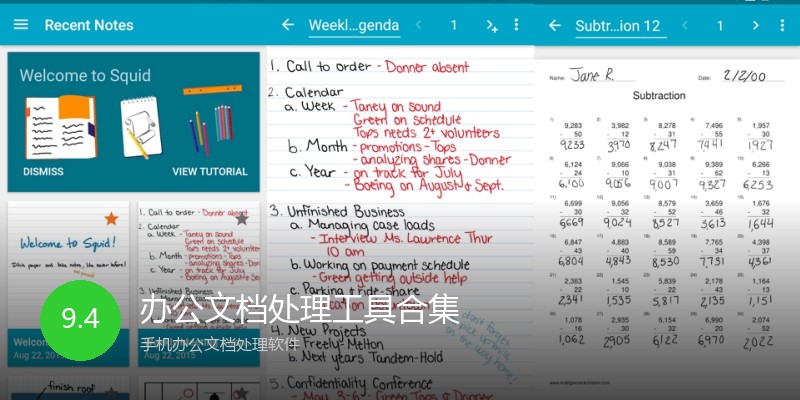 Recent Notes
Welcome to Squid
DISMISS VIEW TUTORIAL
Welcome to Squid!
1. Call to order - Donner absent
2. Calendar
a. Week - Taney on sound
Green on schedule
Tops needs 2+ volunteers
b. Month - promotions - Tops
- analyzing shares - Donner
c. Year - on track for July
- Boeing on August
3. Unfinished Business
Aug 22, 2015
finish roof
Weekl...genda 1
1. Call to order - Donner absent
2. Calendar
a. Week - Taney on sound
Green on schedule
Tops needs 2+ volunteers
b. Month - promotions - Tops
- analyzing shares - Donner
c. Year - on track for July
- Boeing on August & Sept.
3. Unfinished Business
a. Managing case loads
- Interview Ms. Lawrence Thur
10 am
b. Working on payment schedule
- Green getting outside help
c. Parking & ride-share
4. New Projects
Freely-Melton
b. Next years Tandem-Hold
5. Confidentiality Conference
- May 3-6 - Green Tops & Donner
Subtr...ion 12 1
Name: Jane R. Date: 2/2/00
Subtraction
9,283 3,982 8,278 7,496 1,957
- 50 - 12 - 31 - 55 - 30
9233 3970 8,247 7441 1927
6,124 9,066 9,038 9,389 6,266
- 24 - 10 - 31 - 62 - 13
6,100 9,056 9,007 9,327 6253
6,699 9,056 8,579 3,659 1,676
- 30 - 32 - 52 - 46 - 32
6669 9,024 8,527 3,613 1,644
6,847 4,883 8,589 7,765 4,398
- 43 - 40 - 59 - 34 - 37
6804 4,843 8,530 7,731 4,361
2,363 1,545 5,839 2,178 1,164
- 22 - 10 - 22 - 43 - 13
2341 1,535 5,817 2,135 1,151
1,078 2,935 6,154 6,990 2,074
- 16 - 30 - 32 - 20 - 52
1,062 2,905 6,122 6,970 2,022
9.4
办公文档处理工具合集
手机办公文档处理软件